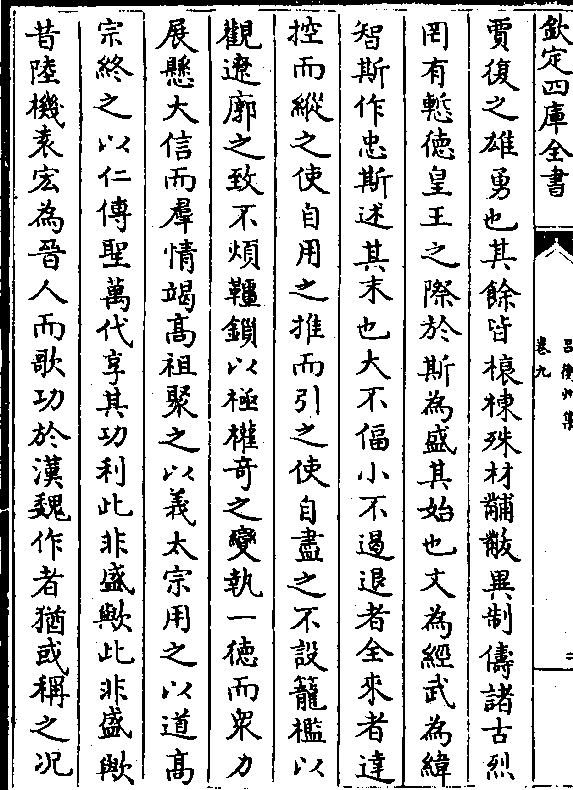 欽定四庫全書
呂衡州集
卷九
二
賈復之雄勇也其餘皆榱棟殊材黼黻異制儔諸古烈
罔有慙德皇王之際於斯為盛其始也文為經武為緯
智斯作忠斯述其末也大不偪小不遏退者全來者達
控而縱之使自用之推而引之使自盡之不設籠檻以
觀遼廓之致不煩韁鎖以極權奇之變執一德而衆力
展懸大信而羣情竭高祖聚之以義太宗用之以道高
宗終之以仁傳聖萬代享其功利此非盛歟此非盛歟
昔陸機袁宏為晉人而歌功於漢魏作者猶或稱之况